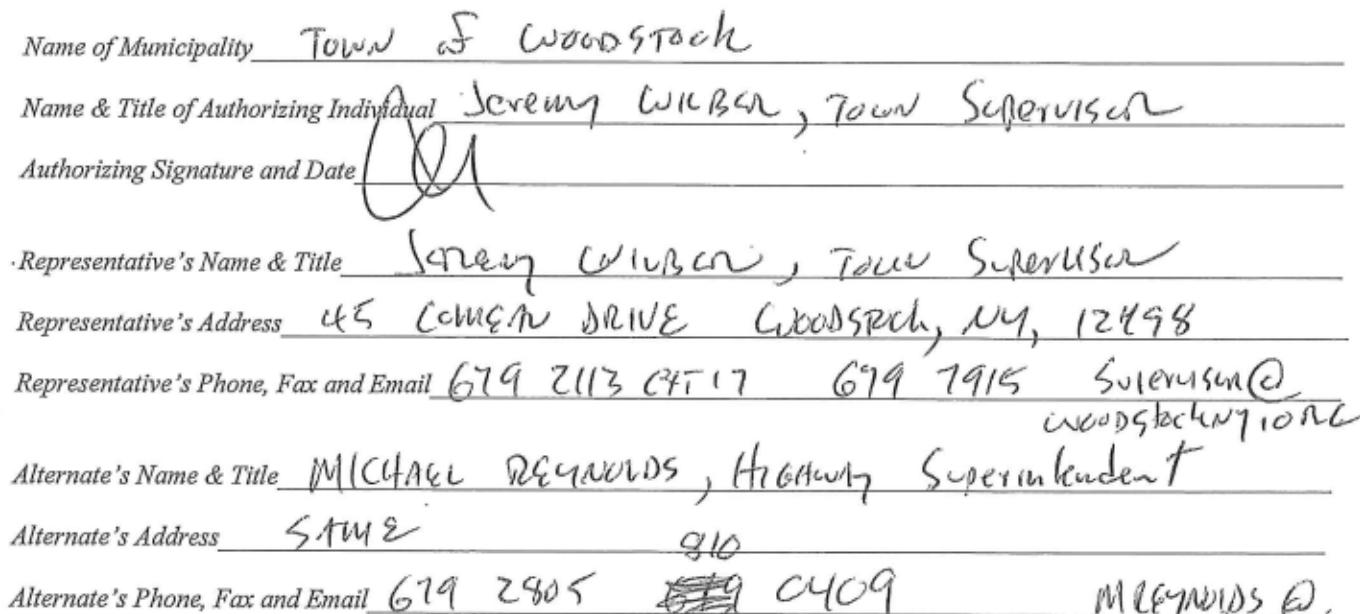 Name of Municipality Town of Woodstock
Name & Title of Authorizing Individual Jeremy Wilber, Town Supervisor
Authorizing Signature and Date
Representative's Name & Title Jeremy Wilber, Town Supervisor
Representative's Address 45 Comeau DRIVE Woodstock, NY, 12498
Representative's Phone, Fax and Email 679 2113 EXT 17 679 7915 Supervisor@
woodstockNY.ORG
Alternate's Name & Title MICHAEL REYNOLDS, Highway Superintendent
Alternate's Address SAME
810
Alternate's Phone, Fax and Email 679 2805 0409 MREYNOLDS @